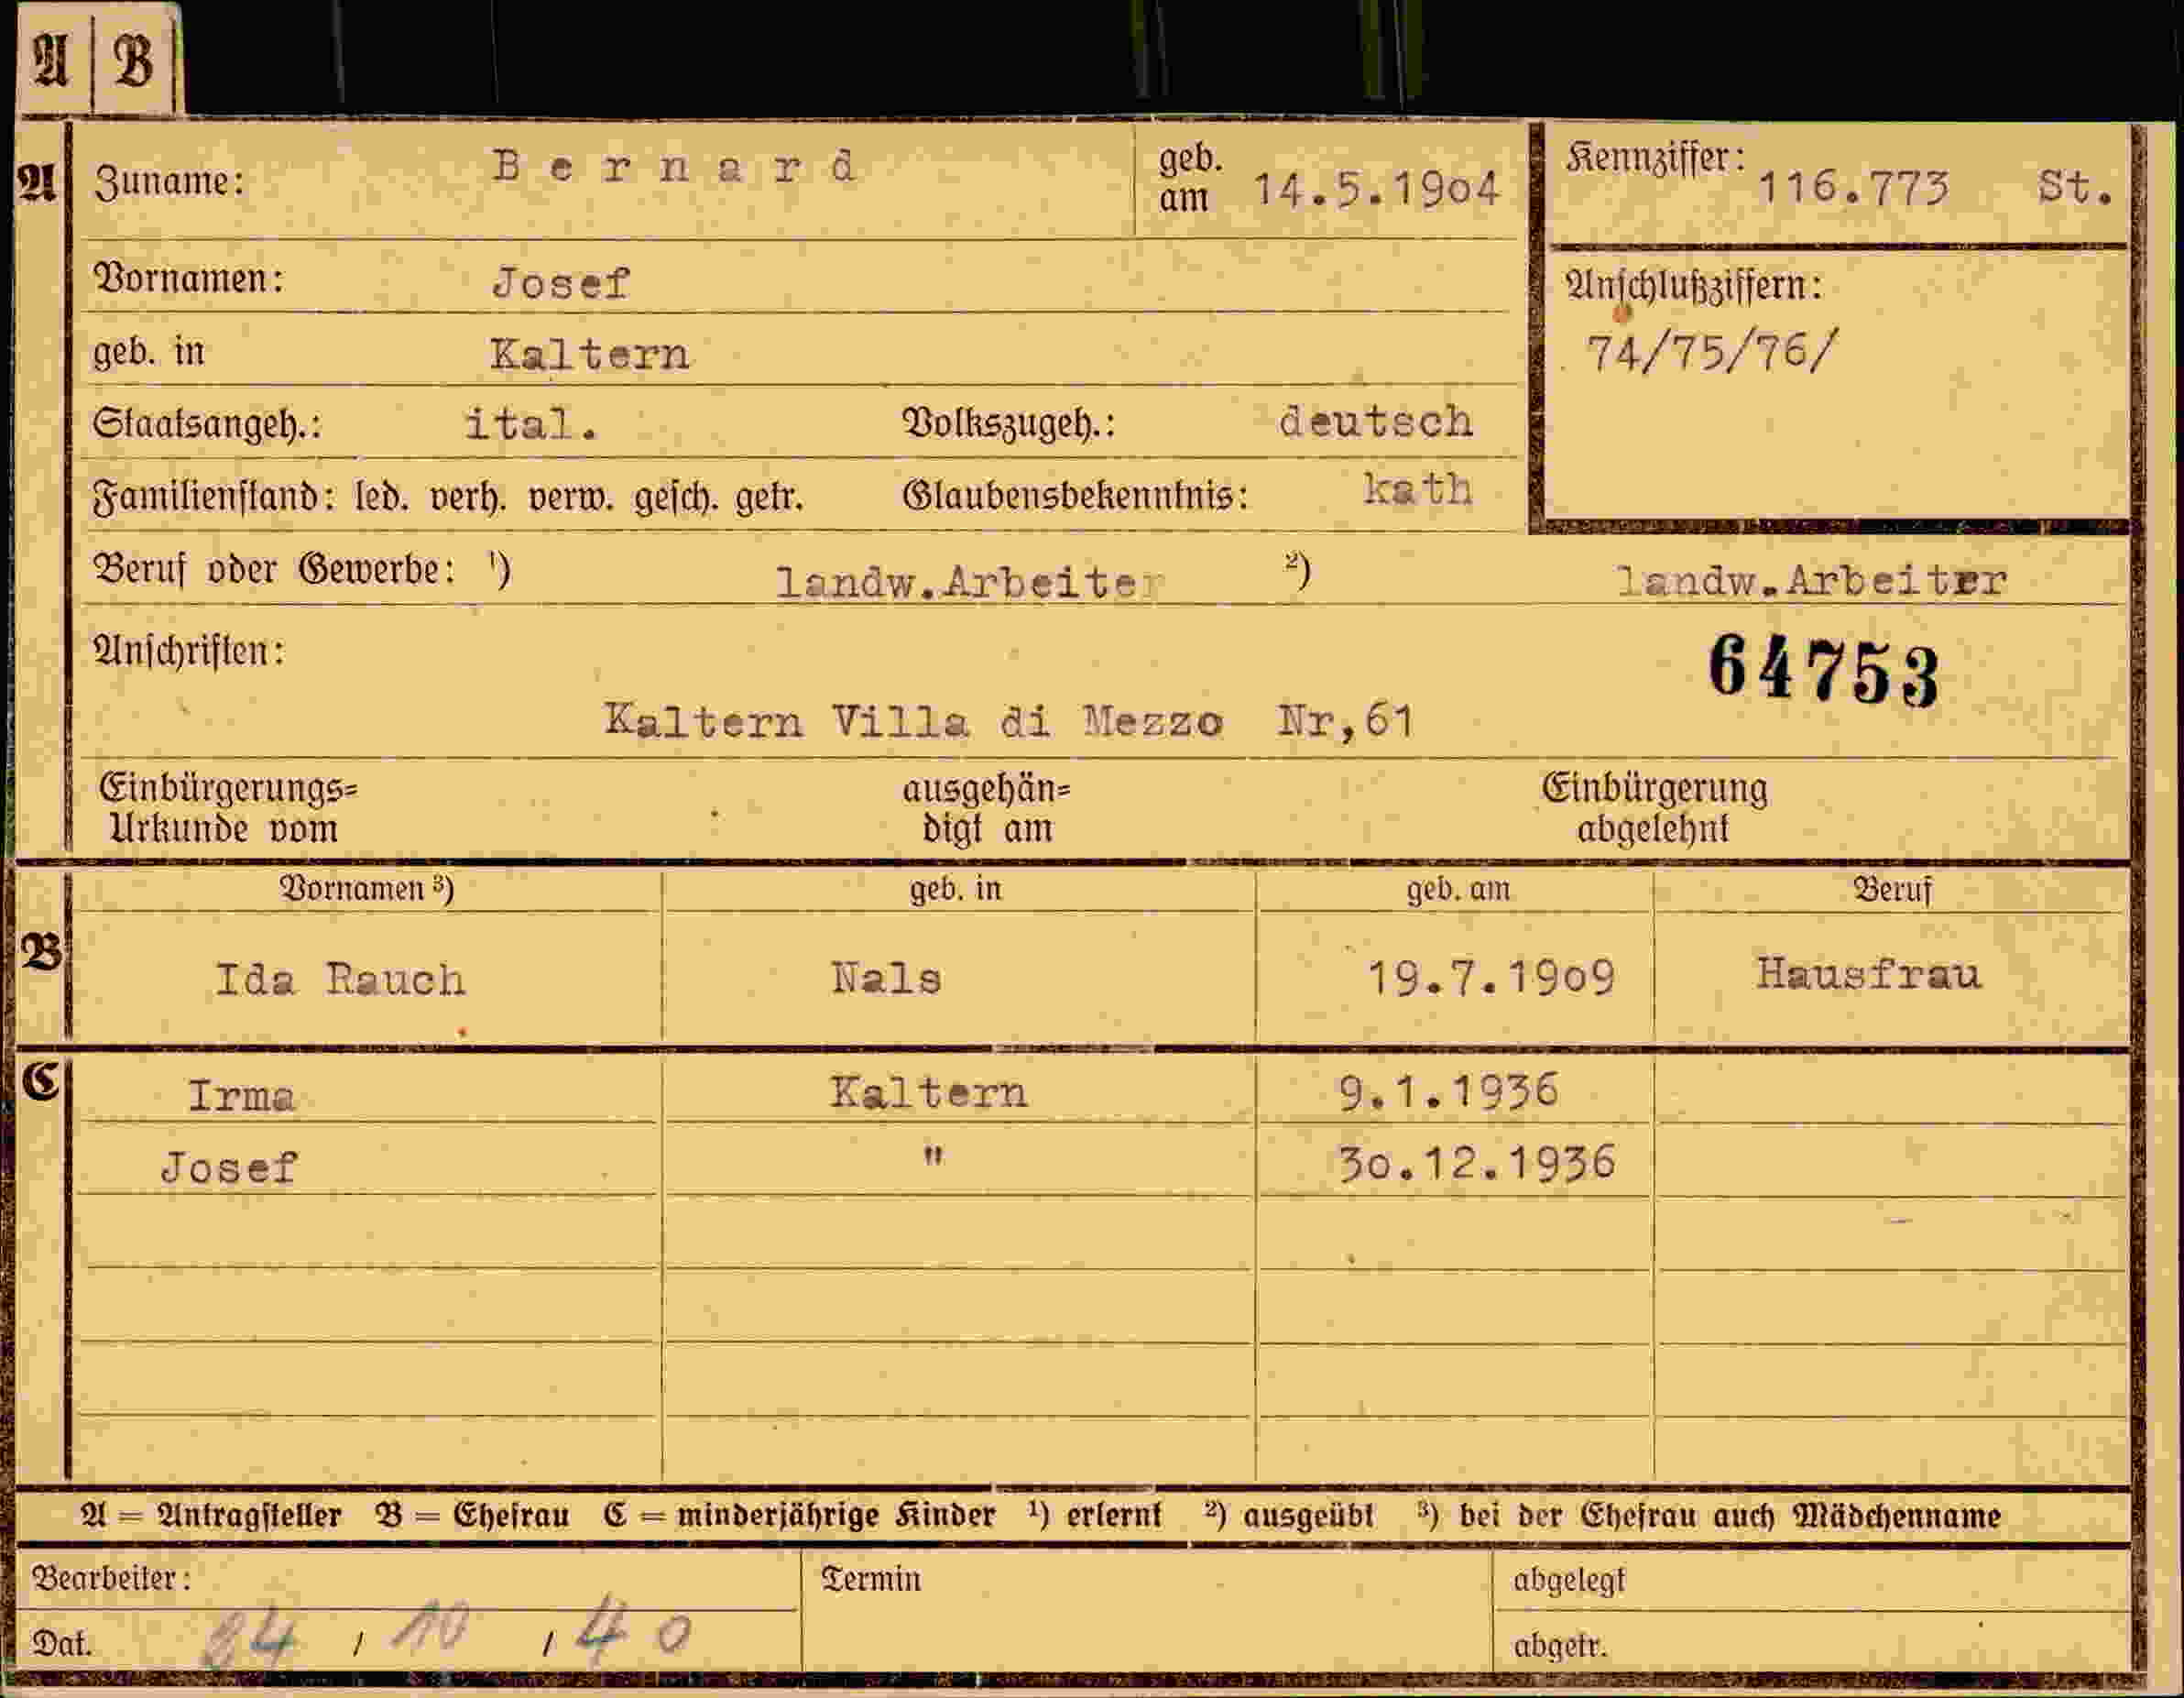 A B
A Zuname: Bernard geb. am 14.5.19o4 Kennziffer: 116.773 St.
Vornamen: Josef Anschlußziffern:
geb. in Kaltern 74/75/76/
Staatsangeh.: ital. Volkszugeh.: deutsch
Familienstand: led. verh. verw. gesch. getr. Glaubensbekenntnis: kath
Beruf oder Gewerbe: 1) landw.Arbeiter 2) landw.Arbeiter
Anschriften: 64753
Kaltern Villa di Mezzo Nr,61
Einbürgerungs= ausgehän= Einbürgerung
Urkunde vom digt am abgelehnt
Vornamen 3) geb. in geb. am Beruf
B Ida Rauch Nals 19.7.19o9 Hausfrau
C Irma Kaltern 9.1.1936
Josef " 3o.12.1936
A = Antragsteller B = Ehefrau C = minderjährige Kinder 1) erlernt 2) ausgeübt 3) bei der Ehefrau auch Mädchenname
Bearbeiter: Termin abgelegt
Dat. / 10 / 40 abgetr.